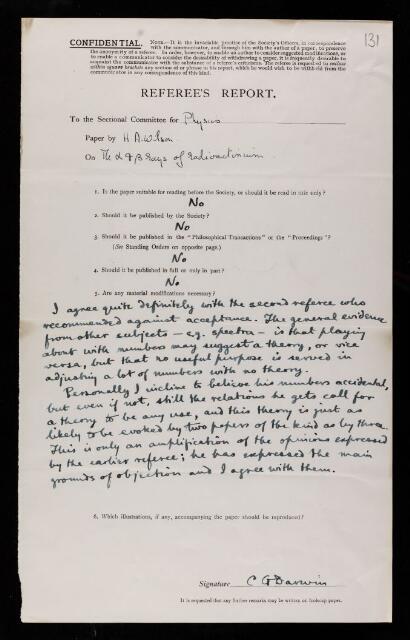 131
CONFIDENTIAL. NOTE.—It is the invariable practice of the Society's Officers, in correspondence
with the communicator, and through him with the author of a paper, to preserve
the anonymity of a referee. In order, however, to enable an author to consider suggested modifications, or
to enable a communicator to consider the desirability of withdrawing a paper, it is frequently desirable to
acquaint the communicator with the substance of a referee's criticisms. The referee is requested to enclose
within square brackets any section of or phrase in his report, which he would wish to be withheld from the
communicator in any correspondence of this kind.
REFEREE'S REPORT.
To the Sectional Committee for Physics
Paper by H A Wilson
On The α & β Rays of Radioactinium
1. Is the paper suitable for reading before the Society, or should it be read in title only?
No
2. Should it be published by the Society?
No
3. Should it be published in the "Philosophical Transactions" or the "Proceedings"?
(See Standing Orders on opposite page.)
No
4. Should it be published in full or only in part?
No
5. Are any material modifications necessary?
I agree quite definitely with the second referee who
recommended against acceptance. The general evidence
from other subjects — e.g. spectra — is that playing
about with numbers may suggest a theory, or vice
versa, but that no useful purpose is served in
adjusting a lot of numbers with no theory.
Personally I incline to believe his numbers accidental,
but even if not, still the relations he gets call for
a theory to be any use, and this theory is just as
likely to be evoked by two papers of the kind as by three.
This is only an amplification of the opinions expressed
by the earlier referee; he has expressed the main
grounds of objection and I agree with them.
6. Which illustrations, if any, accompanying the paper should be reproduced?
Signature C G Darwin
It is requested that any further remarks may be written on foolscap paper.